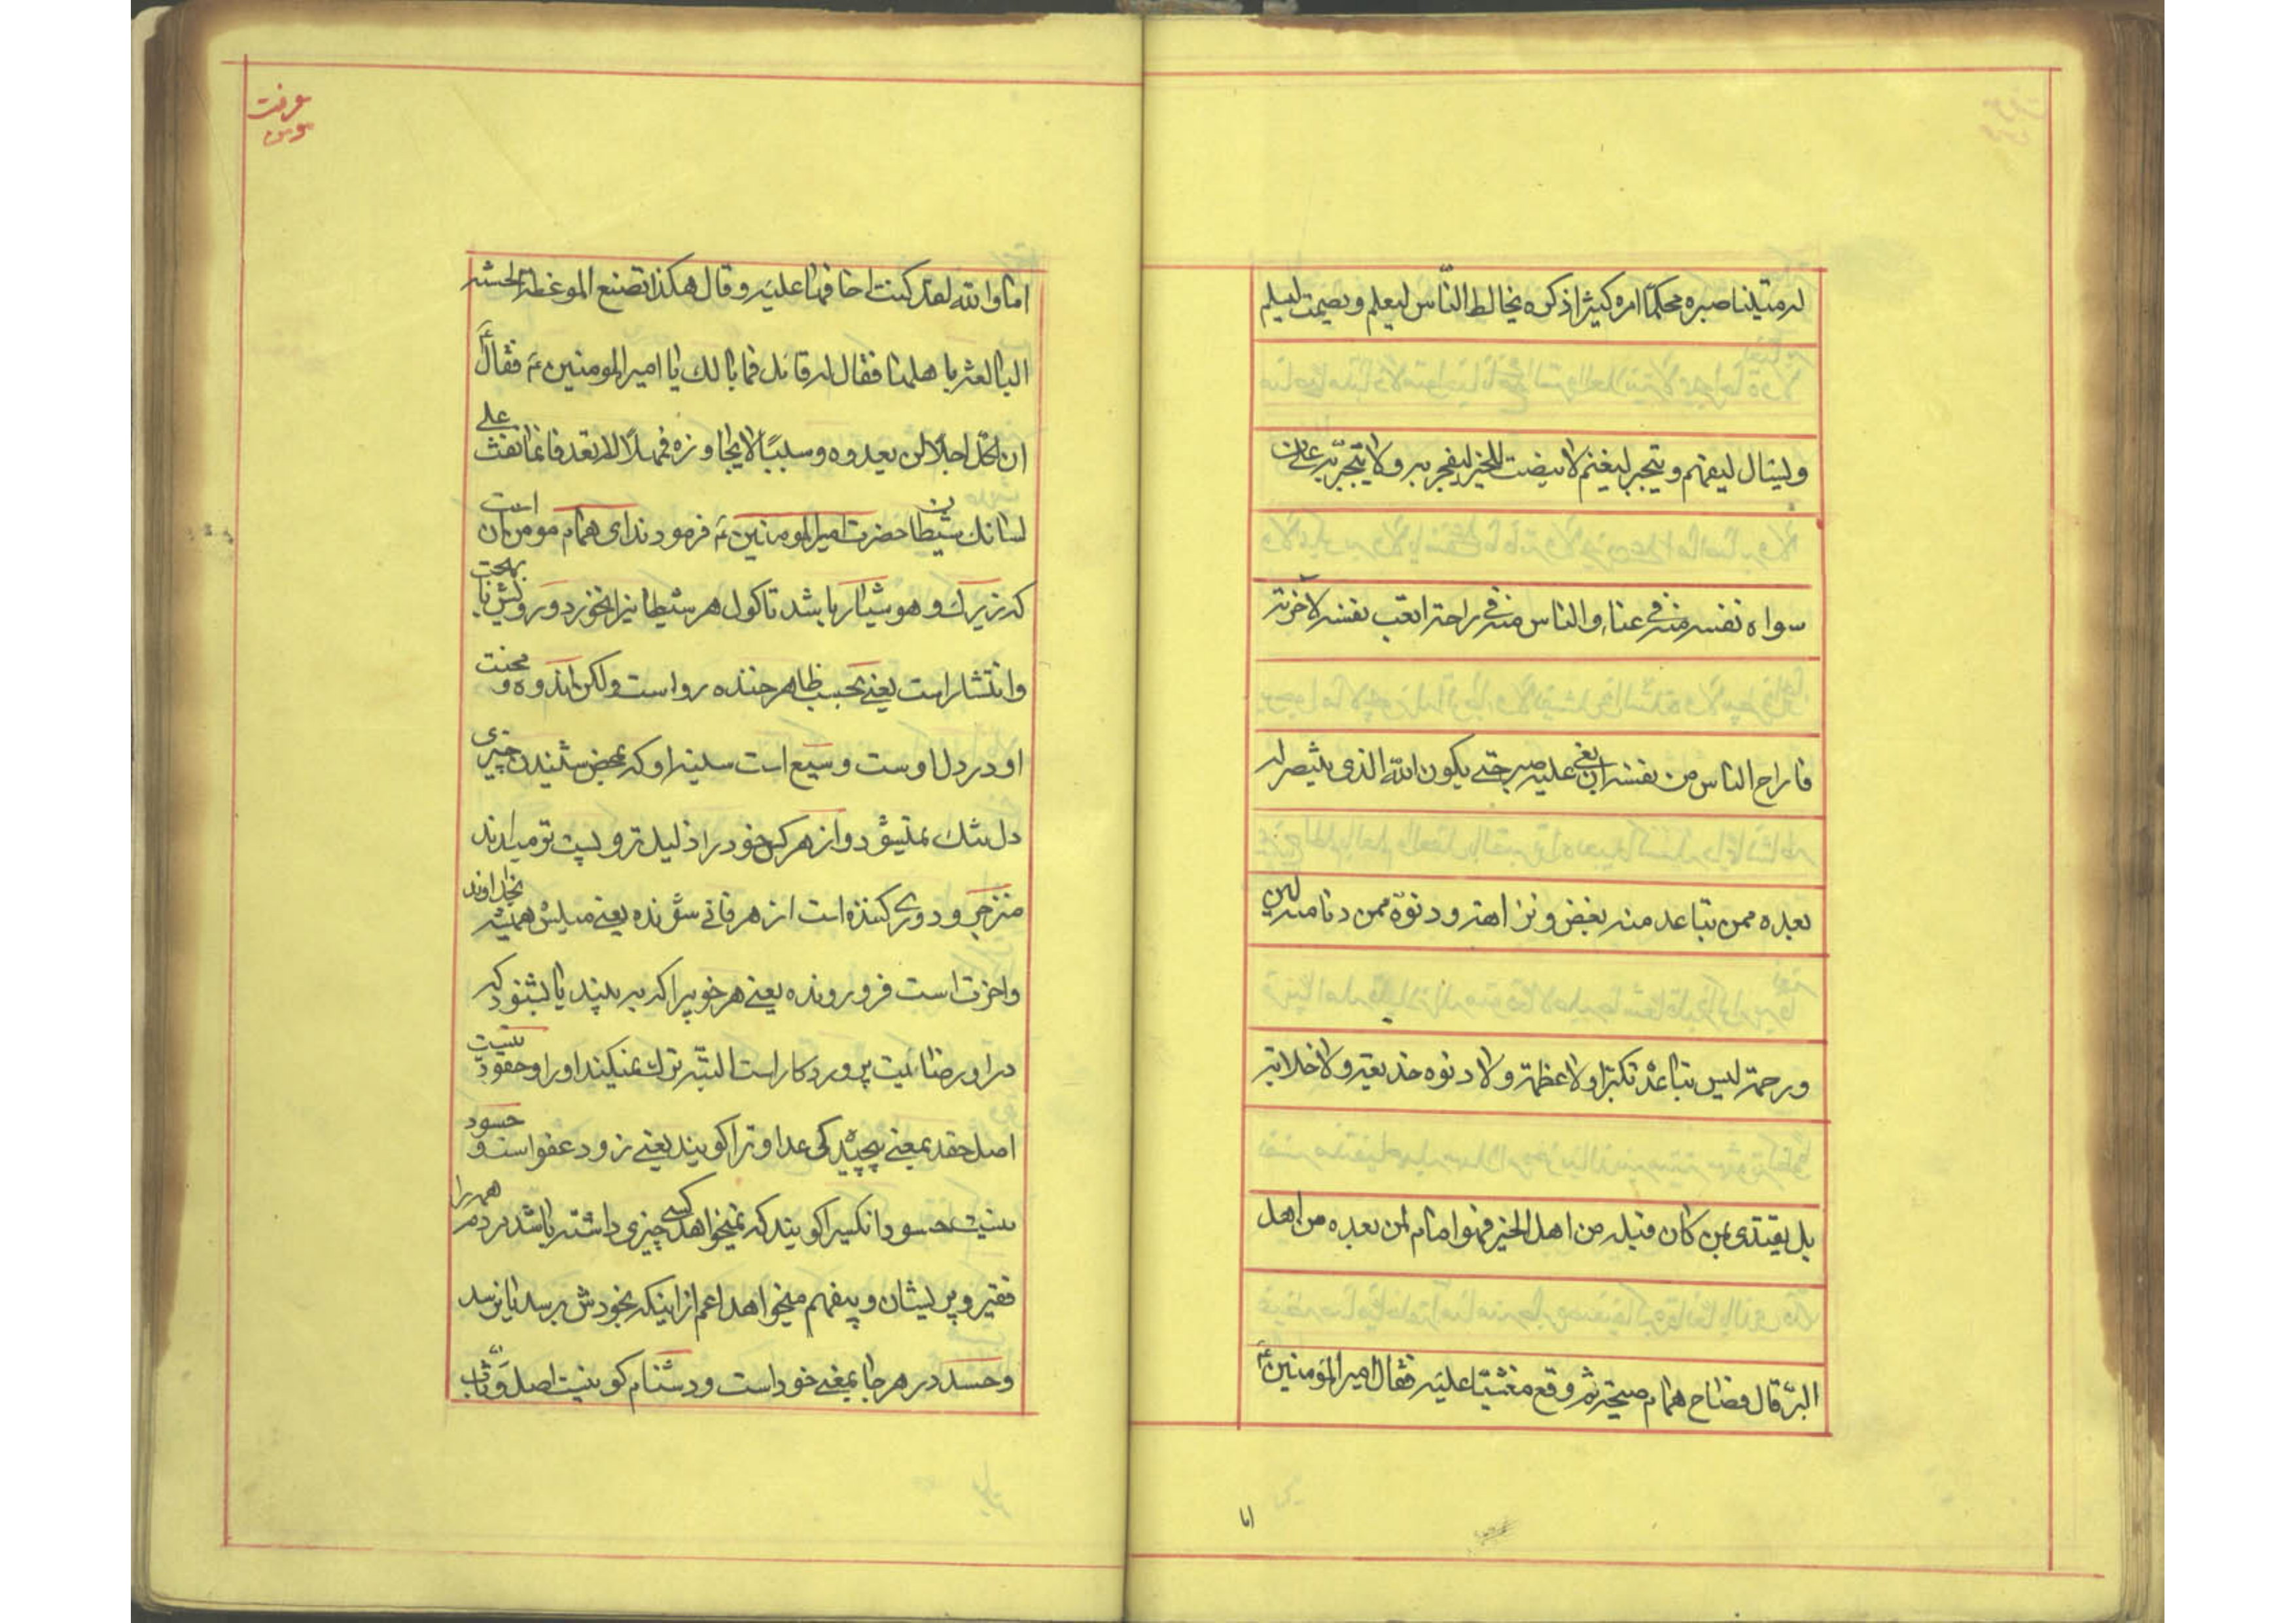 له متینا صبره محکما امره کثیرا ذکره یخالط الناس لیعلم و یصمت لیسلم
و لیسال لیفهم و یتجر لیغنم لا ینصت للخیر لیفجر به و لا یتجبر به علی من
سواه نفسه منه فی عناء و الناس منه فی راحة اتعب نفسه لاخرته
فاراح الناس من نفسه ان بغی علیه صبر حتی یکون الله الذی ینتصر له
بعده ممن تباعد منه بغض و نزاهة و دنوه ممن دنا منه لین
و رحمة لیس تباعده تکبرا و لا عظمة و لا دنوه خدیعة و لا خلابة
بل یقتدی بمن کان قبله من اهل الخیر فهو امام لمن بعده من اهل
البر قال فصاح همام صیحة ثم وقع مغشیا علیه فقال امیر المؤمنین ع
اما
معرفت
مومن
اما و الله لقد کنت اخافها علیه و قال هکذا تصنع الموعظة الحسنه
البالغة باهلها فقال له قائل فما بالک یا امیر المومنین ع فقال ع
ان لکل اجلا لن یعدوه و سببا لا یجاوزه فمهلا لا تعد فانما نفث علی
لسانک شیطان حضرت امیر المومنین ع فرمودند ای همام مومن آن است
که زیرک و هوشیار باشد تا کول هر شیطانیرا نخورد و رویش با بهجت
و انتشار است یعنی بحسب ظاهر خنده رو است و لکن اندوه و محنت
او در دل اوست وسیع است سینه او که بمحض شنیدن چیزی
دل تنک نمیشود و از هر کس خود را ذلیل تر و پست تر میداند
منزجر و دوری کننده است از هر فانی شونده یعنی میلش همیشه بخداوند
و اخرت است فرو رونده یعنی هر خوبیرا که به بیند یا بشنود که
در او رضائیت پروردکار است البته ترک نمیکند او را و حقود نیست
اصل حقد بمعنی پیچیدکی عداوترا کویند یعنی زود عفو است و حسود
نیست حسود انکسیرا کویند که نمیخواهد کسی چیزی داشته باشد مردم همه را
فقیر و پریشان و بیفهم میخواهد اعم از اینکه بخودش برسد یا نرسد
و حسد در هر جا بمعنی خود است و دشنام کو نیست اصل وثاب